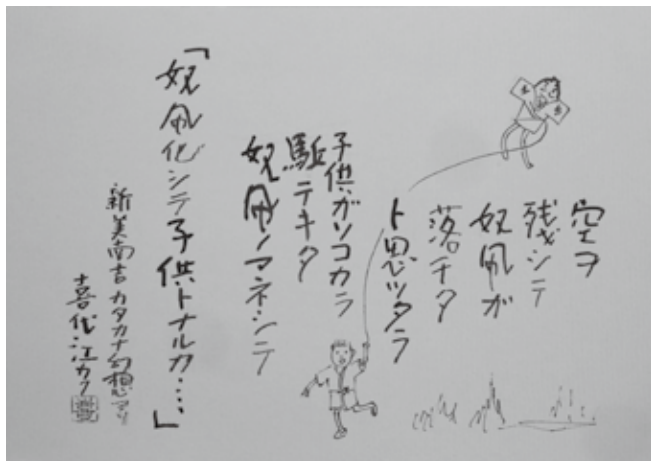 空ヲ
残シテ
奴凧ガ
落チタ
ト思ツタラ
子供ガソコカラ
駈テキタ
奴凧ノマネシテ
「奴凧化シテ子供トナルカ・・・・」
新美南吉カタカナ幻想ヨリ
喜代江カク